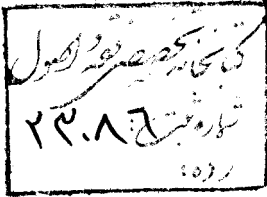 کتابخانه تخصصی فقه و اصول
شماره ثبت: ۲۳۰۸۶
رده: